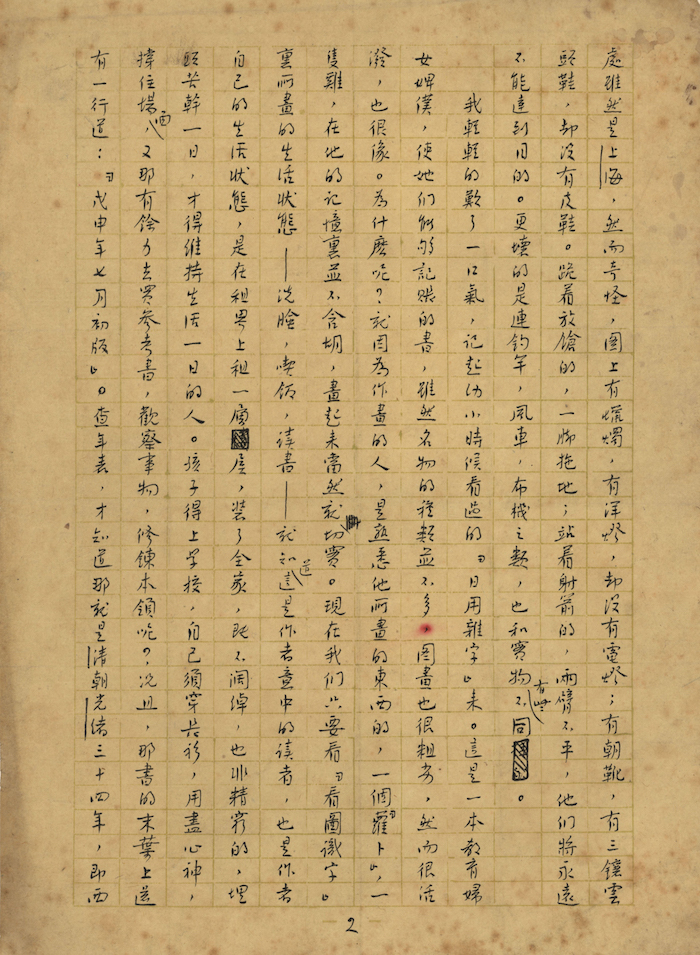 處雖然是上海，然而奇怪，圖上有蠟燭，有洋燈，却沒有電燈；有朝靴，有三鑲雲
頭鞋，却沒有皮鞋。跪着放鎗的，一脚拖地；站着射箭的，兩臂不平，他們將永遠
不能達到目的。更壞的是連釣竿，風車，布機之類，也和實物有些不同。
我輕輕的歎了一口氣，記起幼小時候看過的『日用雜字』來。這是一本教育婦
女婢僕，使她們能够記賬的書，雖然名物的種類並不多，圖畫也很粗劣，然而很活
潑，也很像。為什麽呢？就因為作畫的人，是熟悉他所畫的東西的，一個『蘿卜』，一
隻雞，在他的記憶裏並不含胡，畫起來當然就切實。現在我們只要看『看圖識字』
裏所畫的生活狀態——洗臉，喫飯，讀書——就知道這是作者意中的讀者，也是作者
自己的生活狀態，是在租界上租一層屋，装了全家，既不闊綽，也非精窮的，埋
頭苦幹一日，才得維持生活一日的人。孩子得上學校，自己須穿長衫，用盡心神，
撐住場面，又那有餘力去買參考書，觀察事物，修鍊本領呢？况且，那書的末葉上還
有一行道：『戊申年七月初版』。查年表，才知道那就是清朝光緒三十四年，即西
2